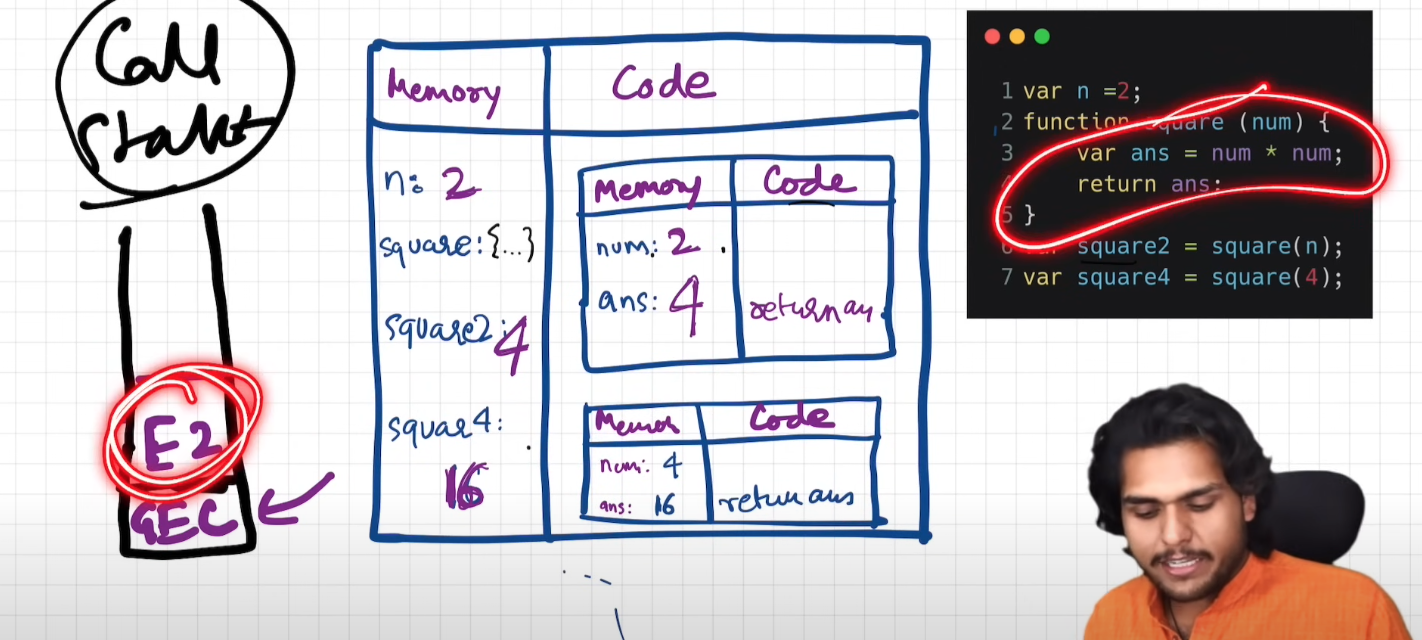 Call
Stack
E2
GEC
Memory
Code
n: 2
square: {...}
square2: 4
squar4:
16
Memory
Code
num: 2
ans: 4
return an
Code
num: 4
ans: 16
return ans
1 var n =2;
2 function square (num) {
3 var ans = num * num;
4 return ans;
5 }
6 var square2 = square(n);
7 var square4 = square(4);